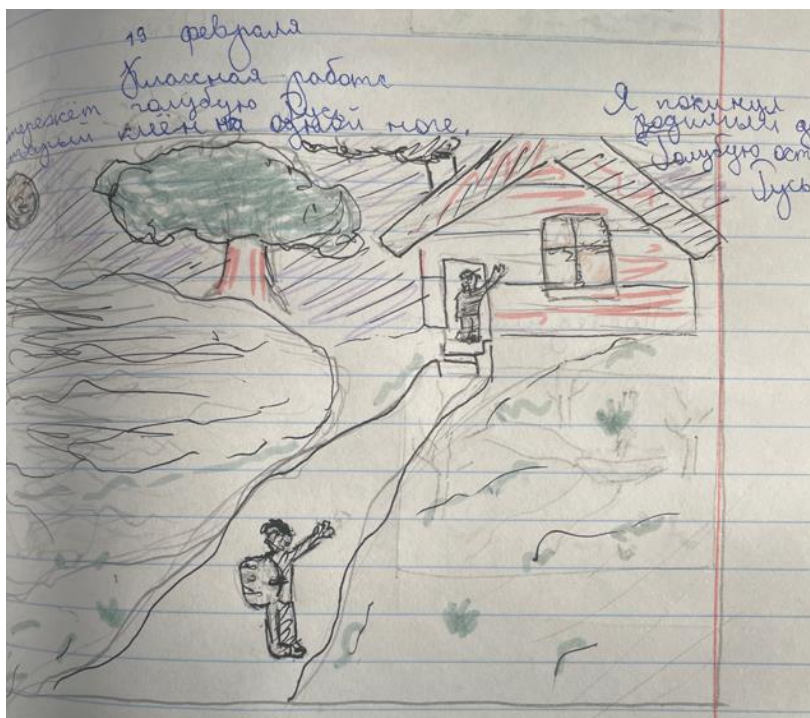 19 февраля
Классная работа
тережёт голубую Русь
тарый клён на одной ноге.
Я покинул
родимый
Голубую ост
Русь